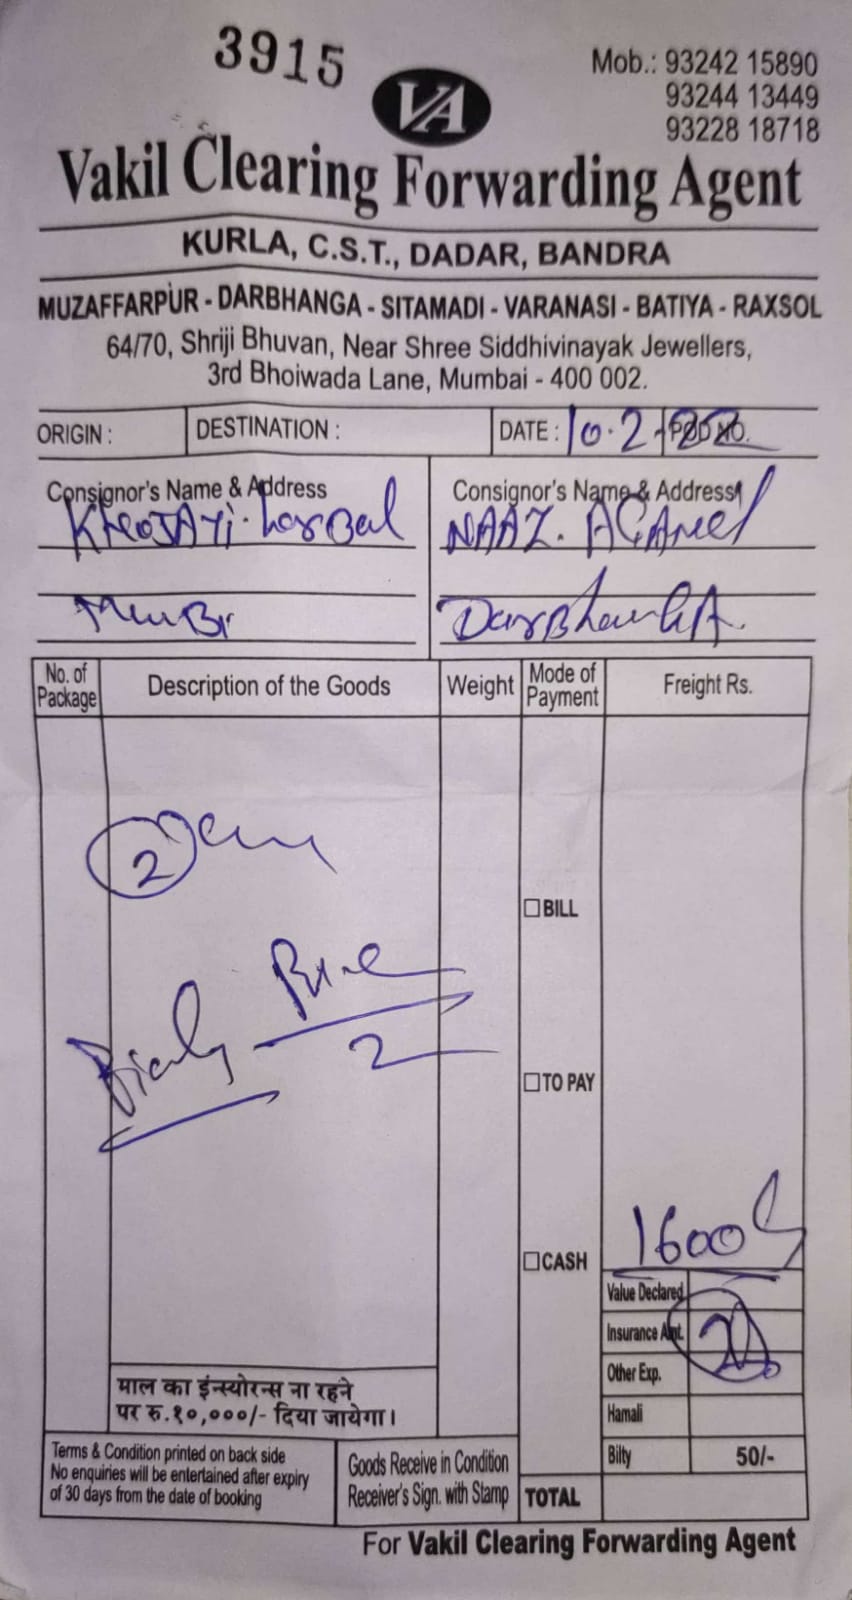 3915
VA
Mob.: 93242 15890
93244 13449
93228 18718
Vakil Clearing Forwarding Agent
KURLA, C.S.T., DADAR, BANDRA
MUZAFFARPUR - DARBHANGA - SITAMADI - VARANASI - BATIYA - RAXSOL
64/70, Shriji Bhuvan, Near Shree Siddhivinayak Jewellers,
3rd Bhoiwada Lane, Mumbai - 400 002.
ORIGIN : DESTINATION : DATE : 10.2.22 POD NO.
Consignor's Name & Address Consignor's Name & Address
NAAZ.
No. of Package Description of the Goods Weight Mode of Payment Freight Rs.
2
BILL
2
TO PAY
1600
CASH
Value Declared
Insurance Amt.
Other Exp.
माल का इंन्स्योरन्स ना रहने
पर रु.१०,०००/- दिया जायेगा।
Hamali
Bilty 50/-
Terms & Condition printed on back side
No enquiries will be entertained after expiry
of 30 days from the date of booking
Goods Receive in Condition
Receiver's Sign. with Stamp
TOTAL
For Vakil Clearing Forwarding Agent